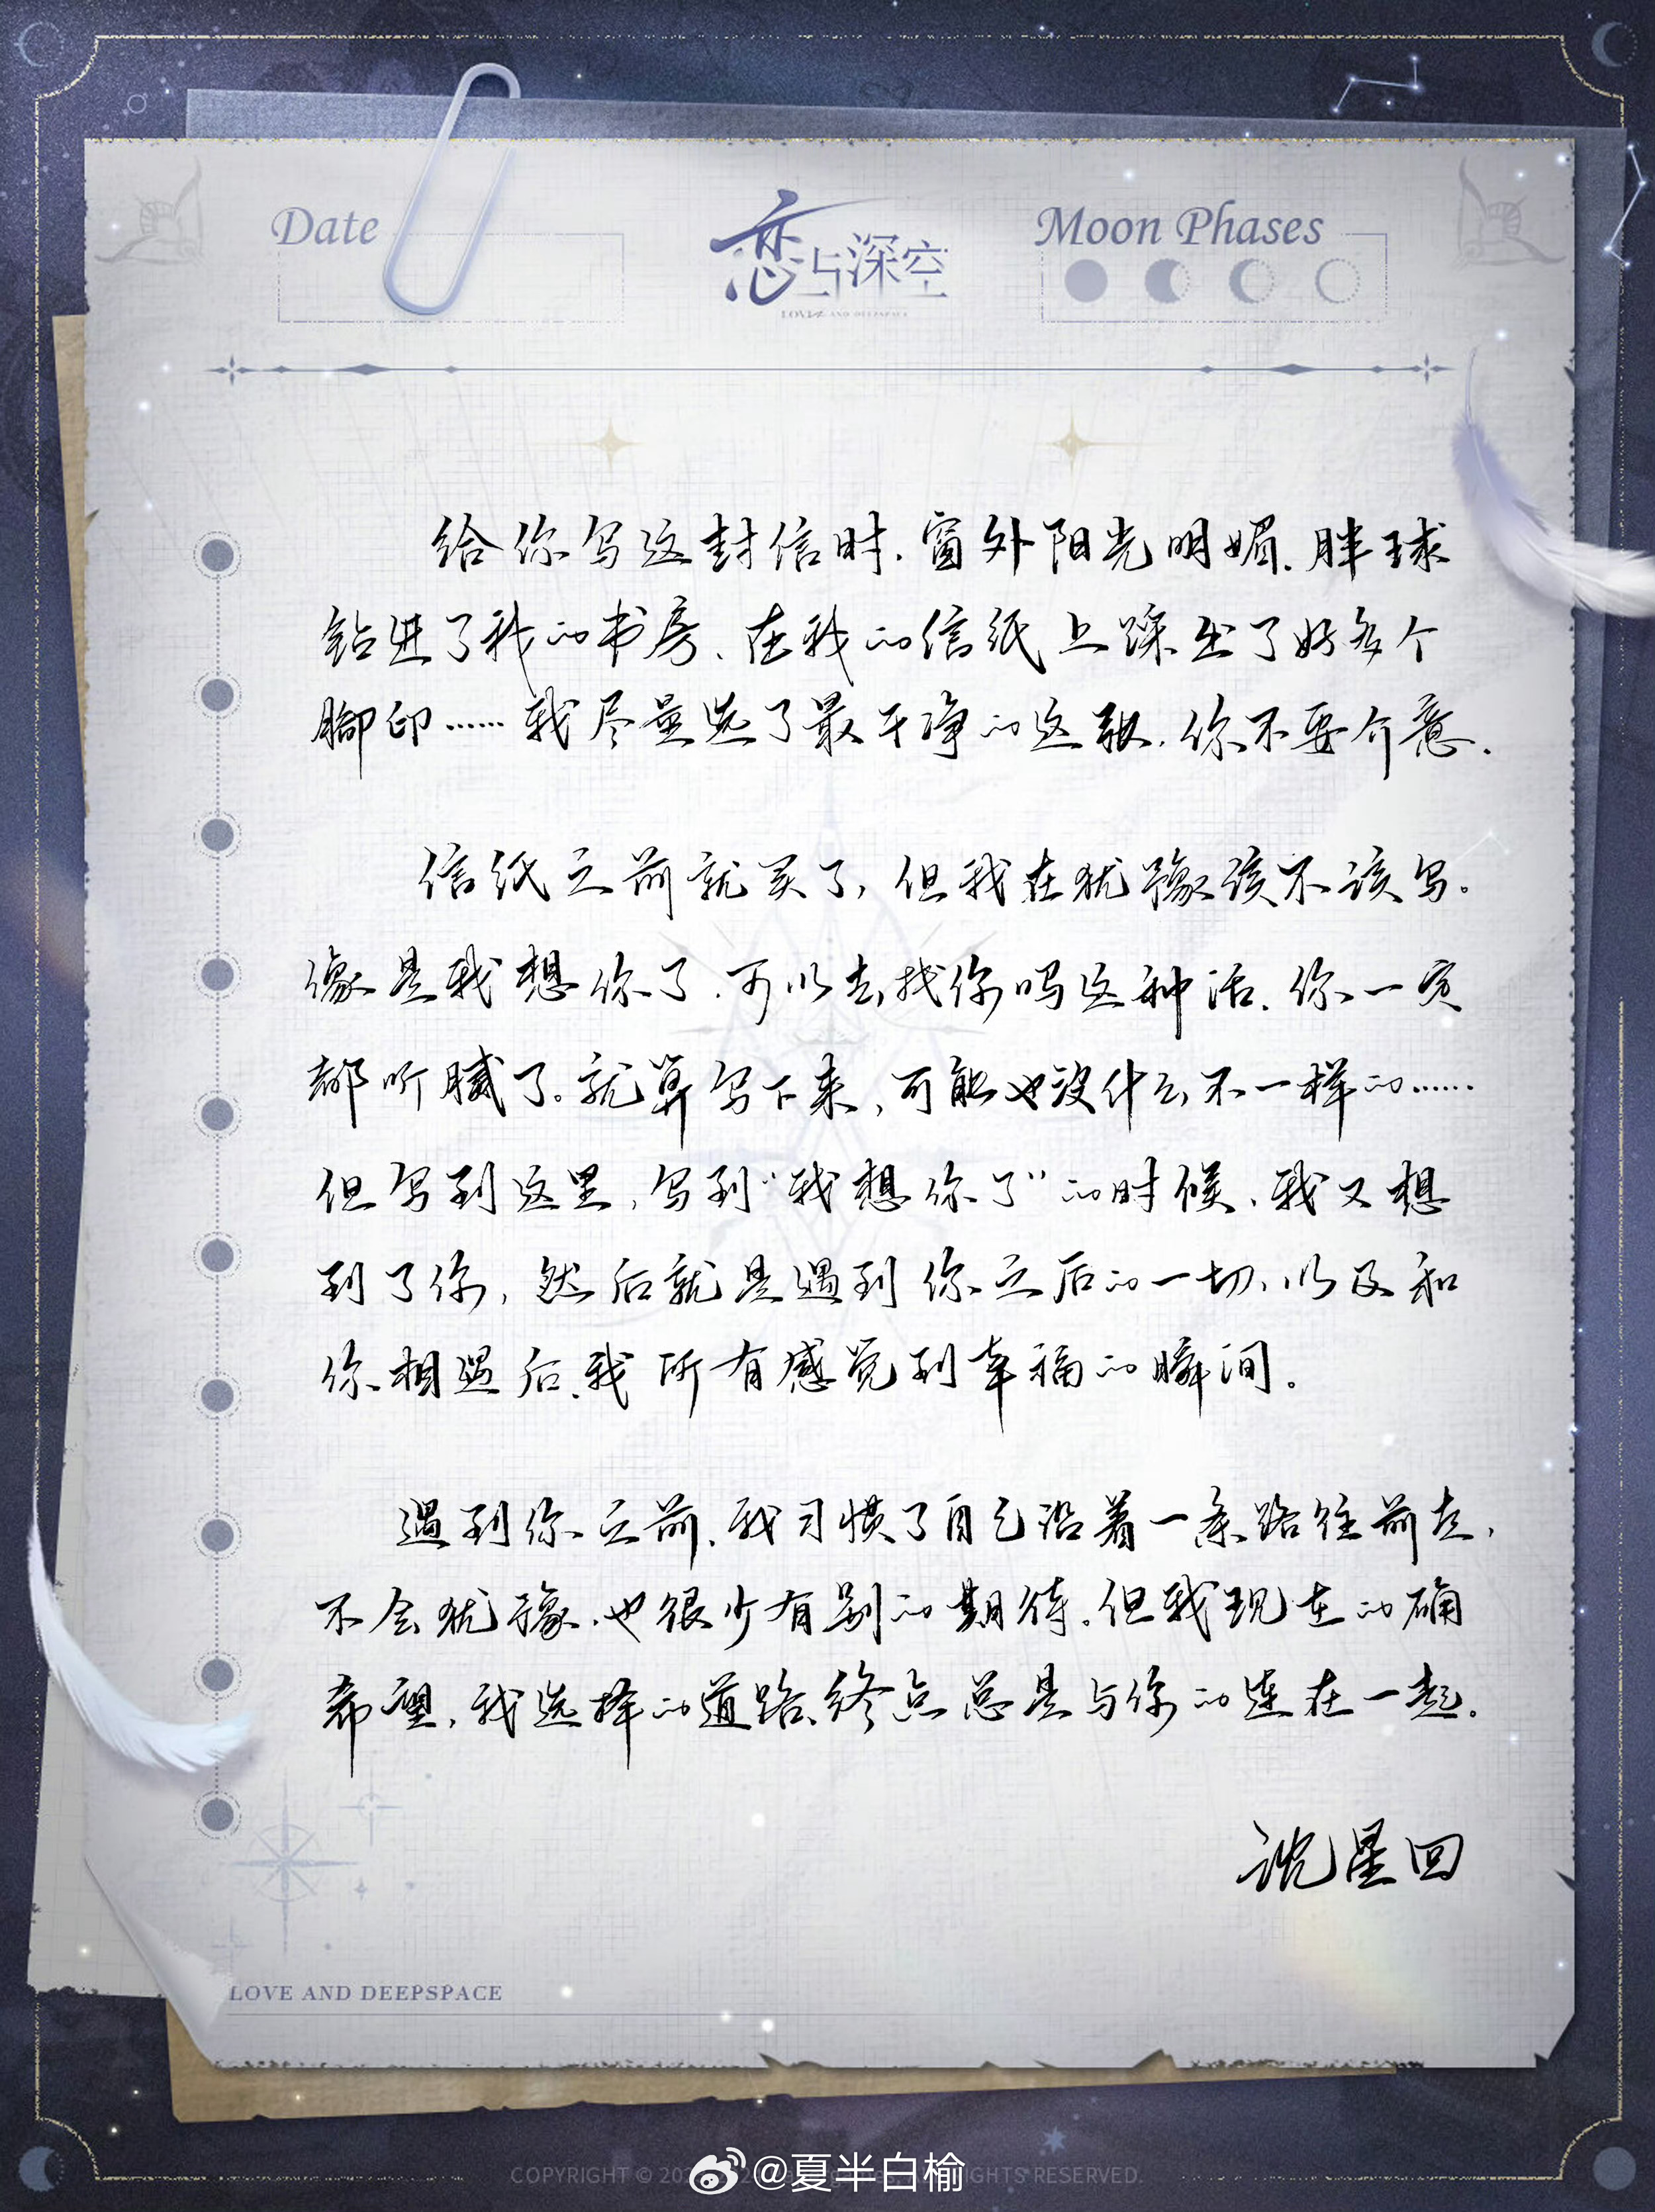 Date
恋与深空
LOVE AND DEEPSPACE
Moon Phases
给你写这封信时，窗外阳光明媚，胖球
钻进了我的书房，在我的信纸上踩出了好多个
脚印……我尽量选了最干净的这张，你不要介意。
信纸之前就买了，但我在犹豫该不该写。
像是我想你了，可以去找你吗这种话，你一定
都听腻了。就算写下来，可能也没什么不一样的……
但写到这里，写到“我想你了”的时候，我又想
到了你，然后就是遇到你之后的一切，以及和
你相遇后，我所有感觉到幸福的瞬间。
遇到你之前，我习惯了自己沿着一条路往前走，
不会犹豫，也很少有别的期待。但我现在的确
希望，我选择的道路，终点总是与你的连在一起。
沈星回
LOVE AND DEEPSPACE
COPYRIGHT ©
RIGHTS RESERVED.
@夏半白榆